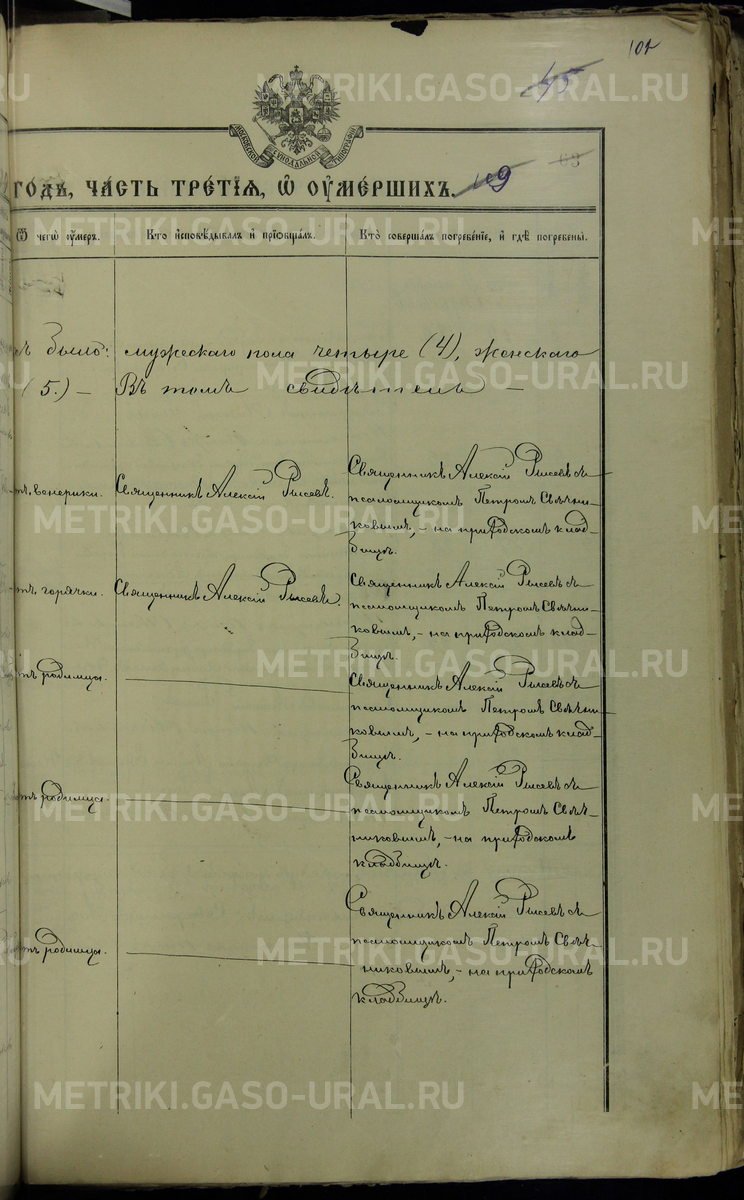 102
45
63
МОСКОВСКОЙ СѴНОДАЛЬНОЙ ТИПОГРАФІИ
годъ, часть третїѧ, ѡ оумершихъ. 109
Ѿ чегѡ оумеръ.
Кто исповѣдывалъ и прїобщалъ.
Кто совершалъ погребенїе, и гдѣ погребены.
было: мужескаго пола четыре (4), женскаго
(5.) — Въ томъ свидѣтели —
тъ венерики.
Священникъ Алексій Рысевъ.
Священникъ Алексій Рысевъ съ
псаломщикомъ Петромъ Свѣчни-
ковымъ, – на приходскомъ клад-
бищѣ.
тъ горячки.
Священникъ Алексій Рысевъ.
Священникъ Алексій Рысевъ съ
псаломщикомъ Петромъ Свѣчни-
ковымъ, – на приходскомъ клад-
бищѣ.
тъ родимца.
Священникъ Алексій Рысевъ съ
псаломщикомъ Петромъ Свѣчни-
ковымъ, – на приходскомъ клад-
бищѣ.
тъ родимца.
Священникъ Алексій Рысевъ съ
псаломщикомъ Петромъ Свѣч-
никовымъ, – на приходскомъ
кладбищѣ.
тъ родимца.
Священникъ Алексій Рысевъ съ
псаломщикомъ Петромъ Свѣч-
никовымъ, – на приходскомъ
кладбищѣ.
METRIKI.GASO-URAL.RU